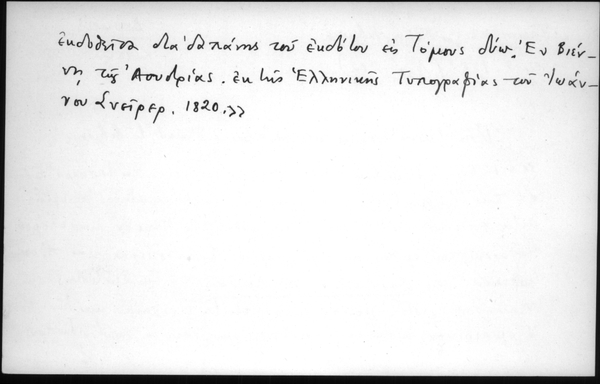 ἐκδοθεῖσα διὰ δαπάνης τοῦ ἐκδότου εἰς Τόμους δύω. Ἐν Βιέν-
νῃ τῆς Ἀουστρίας. ἐκ τῆς Ἑλληνικῆς Τυπογραφίας τοῦ Ἰωάν-
νου Σνεῖρερ. 1820.»